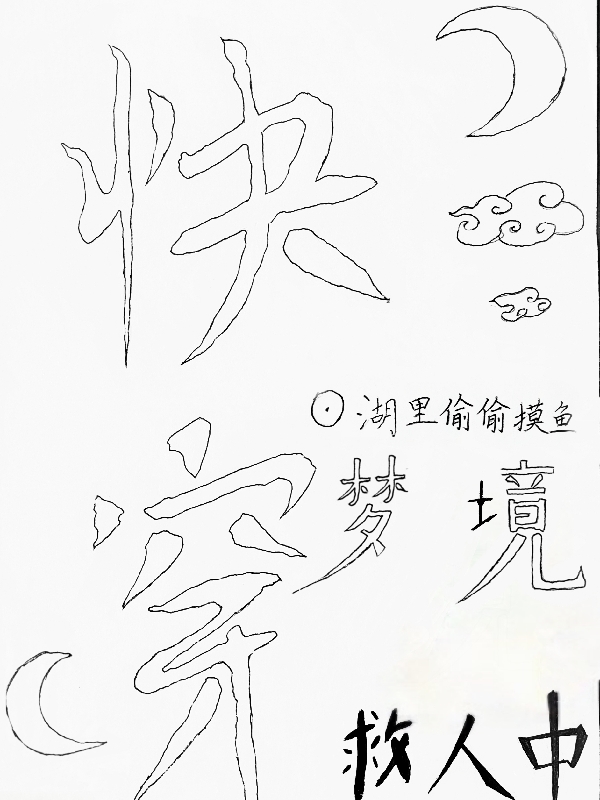 快
穿
⊙湖里偷偷摸鱼
梦境
救人中